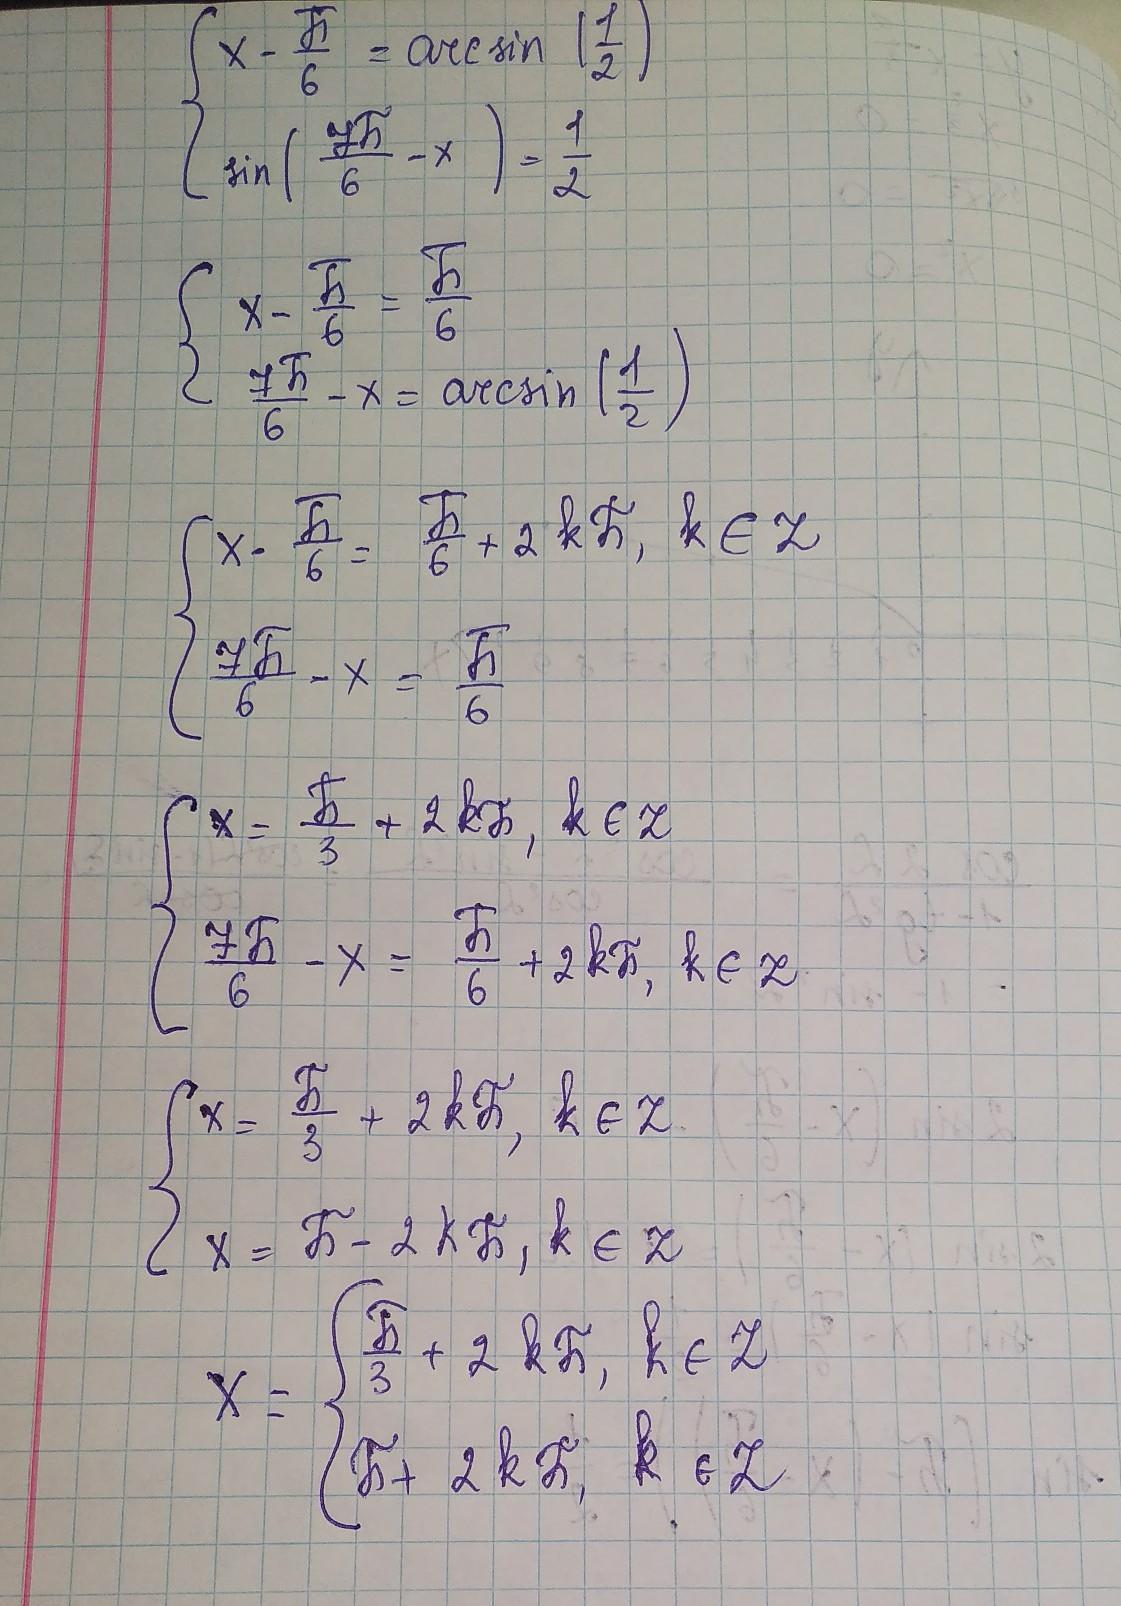 x - π/6 = arcsin (1/2)
sin( 7π/6 - x ) = 1/2
x - π/6 = π/6
7π/6 - x = arcsin (1/2)
x - π/6 = π/6 + 2kπ, k ∈ Z
7π/6 - x = π/6
x = π/3 + 2kπ, k ∈ Z
7π/6 - x = π/6 + 2kπ, k ∈ Z
x = π/3 + 2kπ, k ∈ Z
x = π - 2kπ, k ∈ Z
x = { π/3 + 2kπ, k ∈ Z
π + 2kπ, k ∈ Z